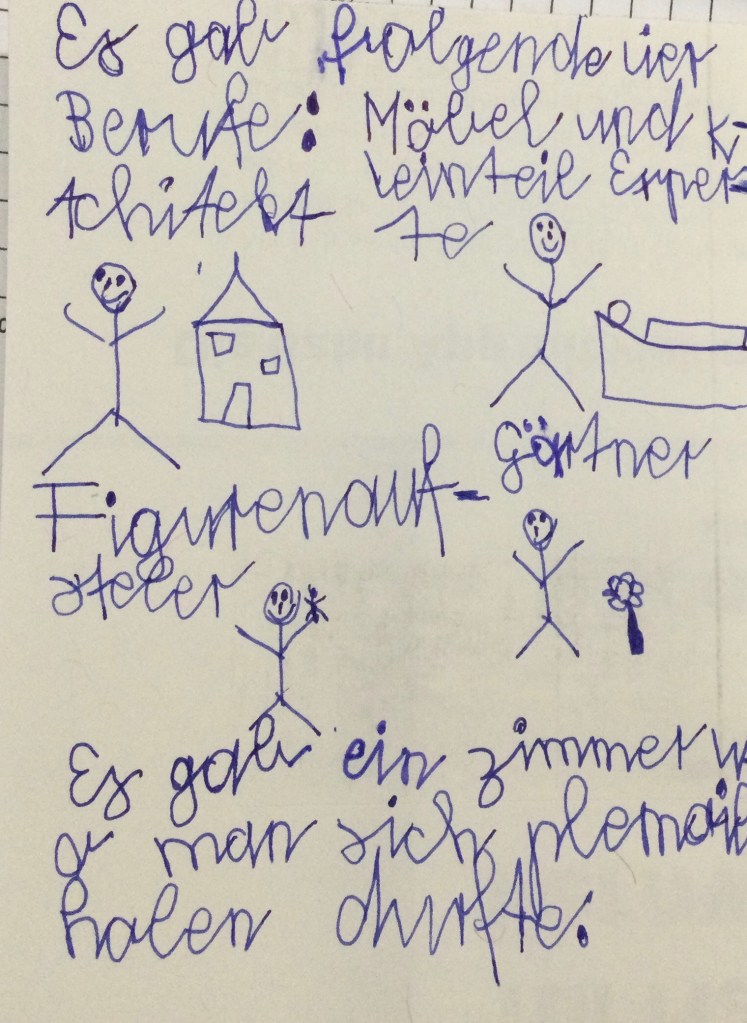 Es gab folgende vier
Berufe: Möbel und K-
leinteil Exper-
te
Achitekt
Figurenauf-
steler
Gärtner
Es gab ein zimmer
man sich
holen durfte.